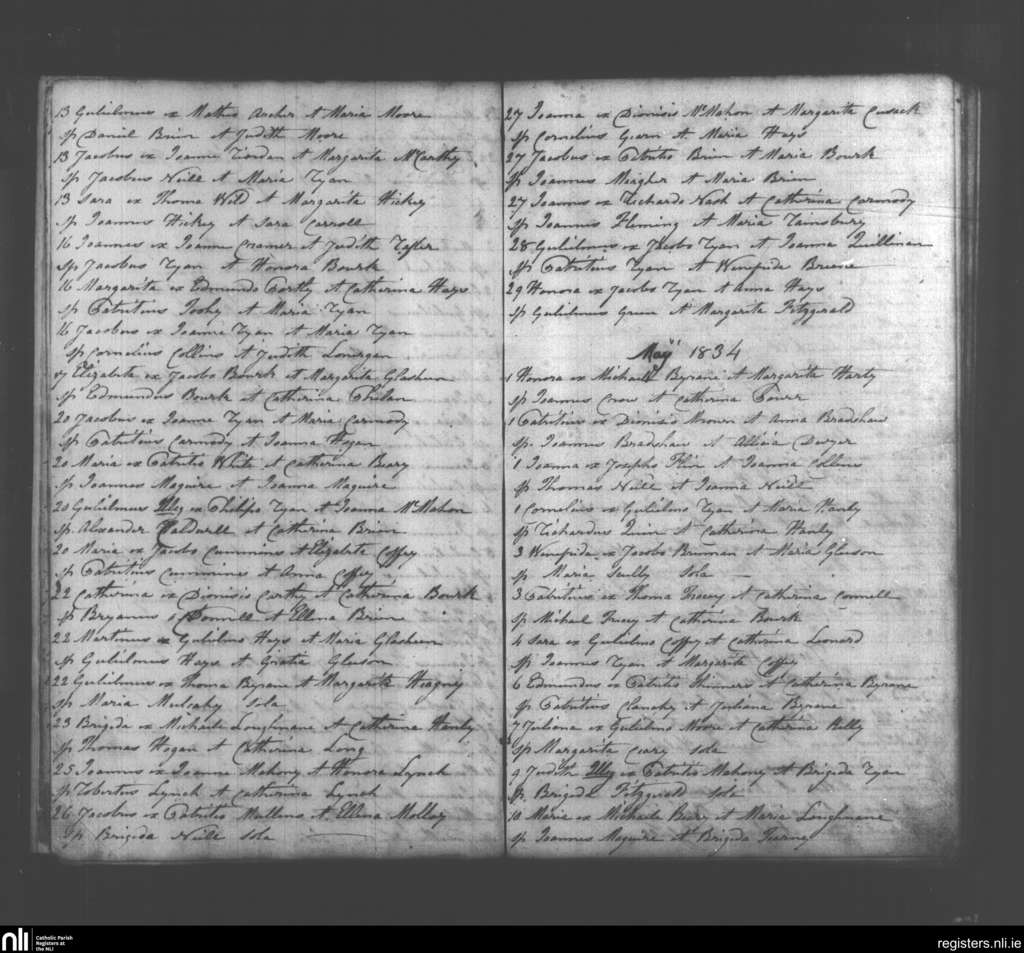 13 Gulielmus ex Mathio Archer et Maria Moore
sp Daniel Brien et Judith Moore
13 Jacobus ex Joanne Riordan et Margarita McCarthy
sp Jacobus Neill et Maria Ryan
13 Sara ex Thoma Weld et Margarita Hickey
sp Joannes Hickey et Sara Carroll
16 Joannes ex Joanne Cramer et Judith
sp Jacobus Ryan et Honora Bourk
16 Margarita ex Edmundo Carthy et Catherina Hays
sp Patritius et Maria Ryan
16 Jacobus ex Joanne Ryan et Maria Ryan
sp Cornelius Collins et Judith Lonergan
17 Elizabeta ex Jacobo Bourk et Margarita Glasheen
sp Edmundus Bourk et Catherina Phelan
20 Jacobus ex Joanne Ryan et Maria Carmody
sp Patritius Carmody et Joanna Hogan
20 Maria ex Patritio White et Catherina Beary
sp Joannes Maguire et Joanna Maguire
20 Gulielmus Illeg ex Philipo Ryan et Joanna McMahon
sp. Alexander Caldwell et Catherina Brien
20 Maria ex Jacobo Cummins et Elizabeta Coffey
sp Patritius Cummins et Anna Coffey
22 Catherina ex Dionisio Carthy et Catherina Bourk
sp Bryanus O Donnell et Ellena Brien
22 Martinus ex Gulielmo Hays et Maria Glasheen
sp Gulielmus Hays et Gratia Gleeson
22 Gulielmus ex Thoma Byrane et Margarita Heagney
sp Maria Mulcahy sola
23 Brigida ex Michaele Loughnane et Catherina Hanly
sp Thomas Hogan et Catherina Long
25 Joannes ex Joanne Mahony et Honora Lynch
sp Robertus Lynch et Catherina Lynch
26 Jacobus ex Patritio Mullens et Ellena Molloy
sp Brigida Neill sola
27 Joanna ex Dionisio McMahon et Margarita Cusack
sp Cornelius et Maria Hays
27 Jacobus ex Patritio Brien et Maria Bourk
sp Joannes Meagher et Maria Brien
27 Joannes ex Richardo Nash et Catherina Carmody
sp Joannes Fleming et Maria Rainsbury
28 Gulielmus ex Jacobo Ryan et Joanna Quillinan
sp Patritius Ryan et Winefrida
29 Honora ex Jacobo Ryan et Anna Hays
sp Gulielmus et Margarita Fitzgerald
May 1834
1 Honora ex Michaele Byrane et Margarita Harty
sp Joannes Crow et Catherina
1 Patritius ex Dionisio et Anna Bradshaw
sp. Joannes Bradshaw et Allicia Dwyer
1 Joanna ex Josepho Flin et Joanna Collins
sp Thomas Neill et Joanna Neill
1 Cornelius ex Gulielmo Ryan et Maria Hanly
sp Richardus Quin et Catherina Hanly
3 Winefrida ex Jacobo Brennan et Maria Gleeson
sp Maria Scully sola
3 Patritius ex Thoma Treacy et Catherina Connell
sp Michael Treacy et Catherina Bourk
4 Sara ex Gulielmo Coffey et Catherina Leonard
sp Joannes Ryan et Margarita Coffey
6 Edmundus ex Patritio Skinners et Catherina Byrane
sp Patritius Clanchy et Juliana Byrane
7 Juliana ex Gulielmo Moore et Catherina Kelly
sp Margarita Crary sola
9 Judith Illeg ex Patritio Mahony et Brigida Ryan
sp. Brigida Fitzgerald sola
10 Maria ex Michaele et Maria Loughnane
sp Joannes Maguire et Brigida
nli
Catholic Parish
Registers at
the NLI
registers.nli.ie